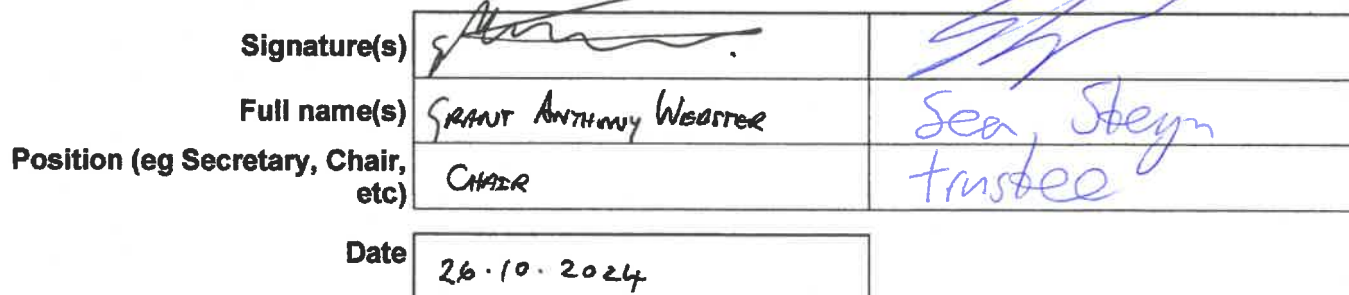 Signature(s)
Full name(s) GRANT ANTHONY WEBSTER Sean Steyn
Position (eg Secretary, Chair,
etc) CHAIR trustee
Date 26.10.2024